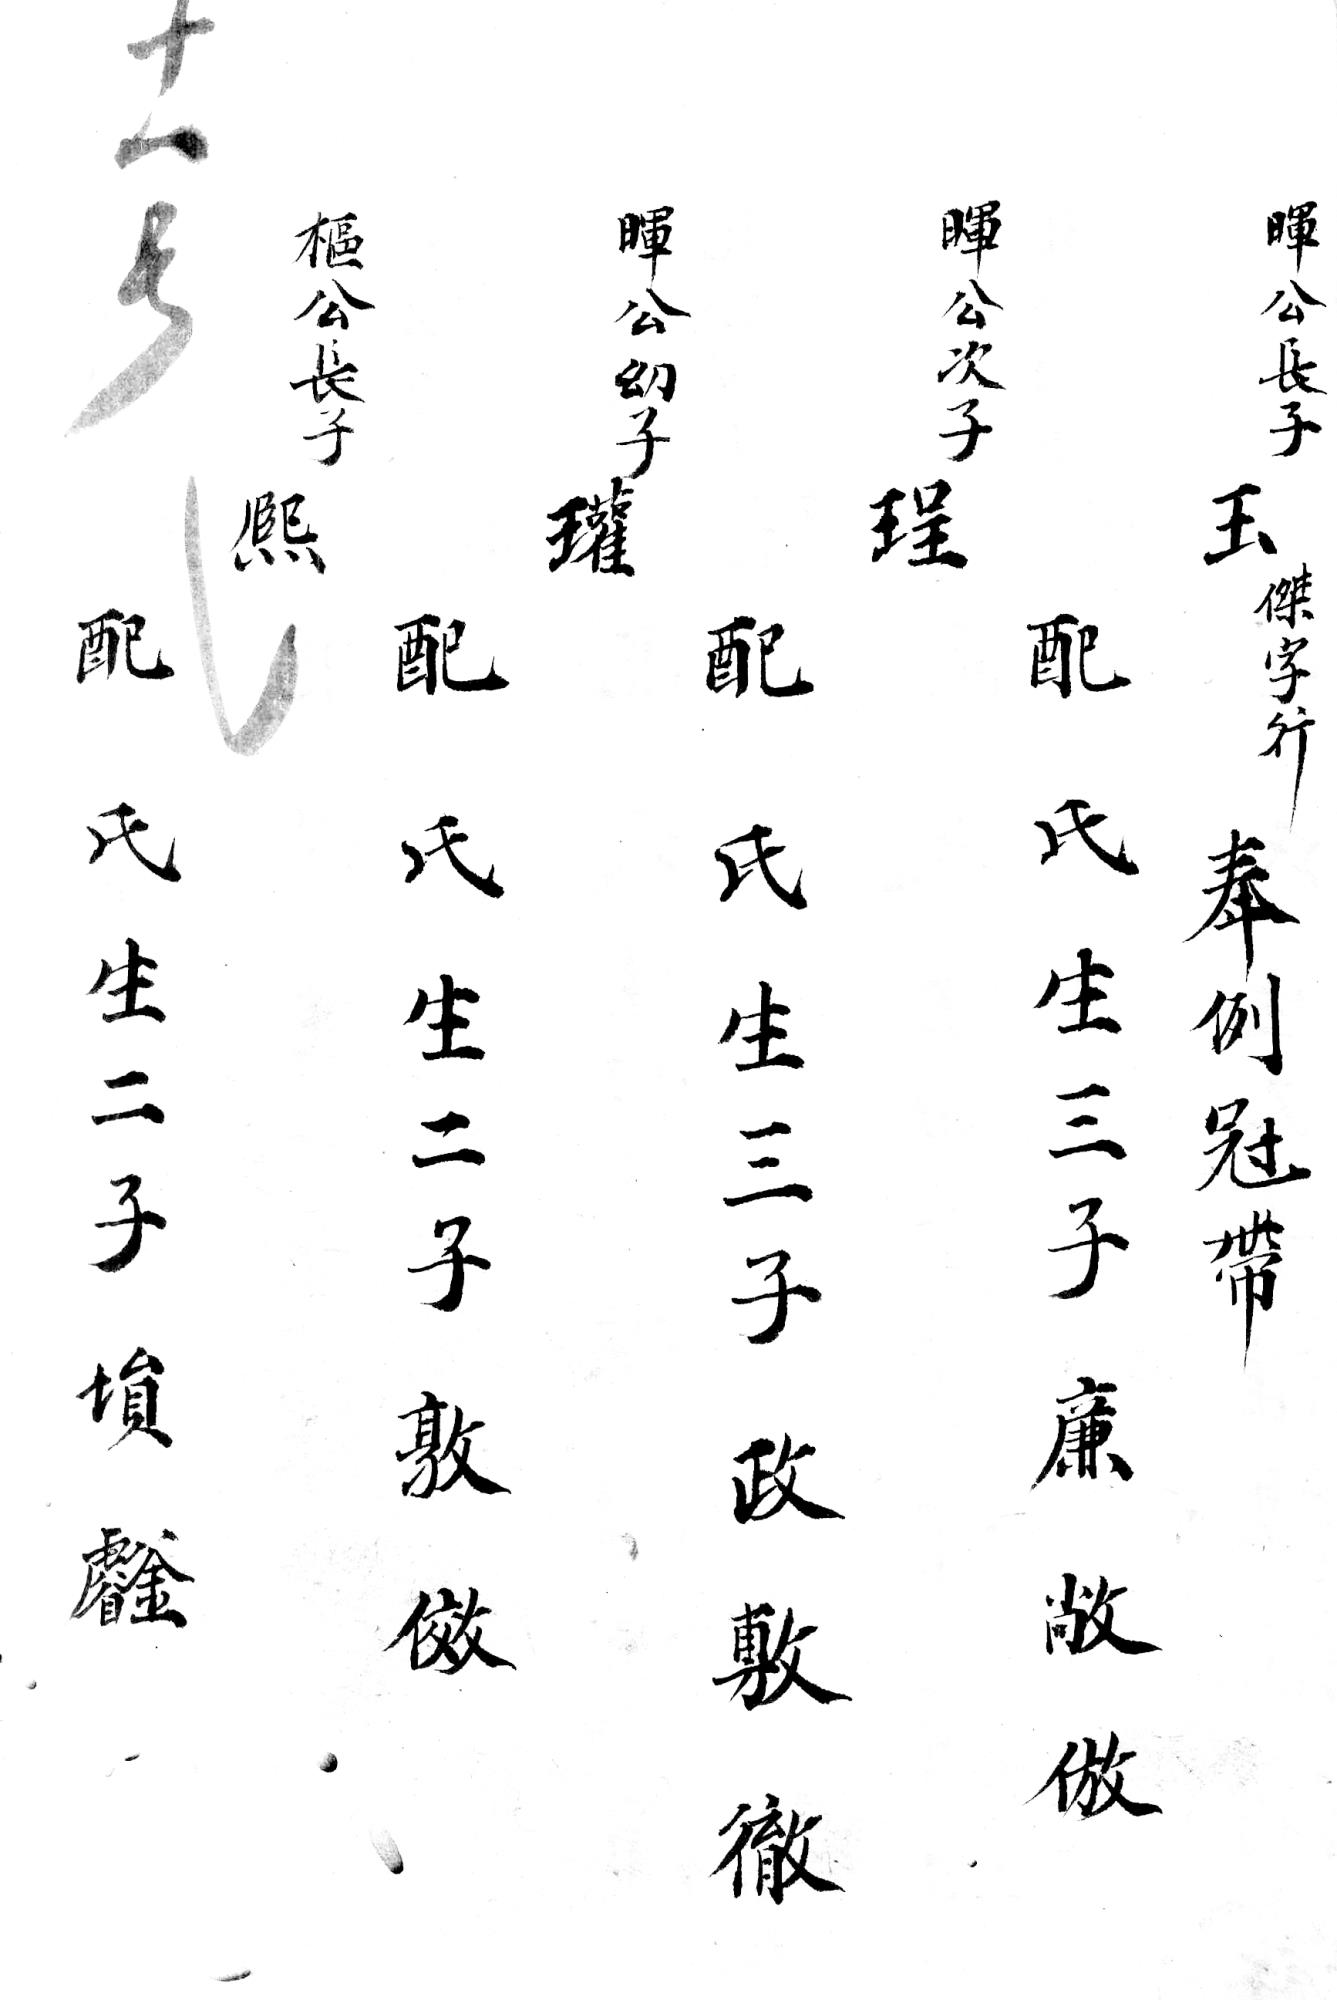 暉公長子
玉 傑字行 奉例冠帶
配 氏生三子 廉 敞 倣
暉公次子
珵
配 氏生三子 政 敷 徹
暉公幼子
瓘
配 氏生二子 敦 傚
樞公長子
熙
配 氏生二子 塤